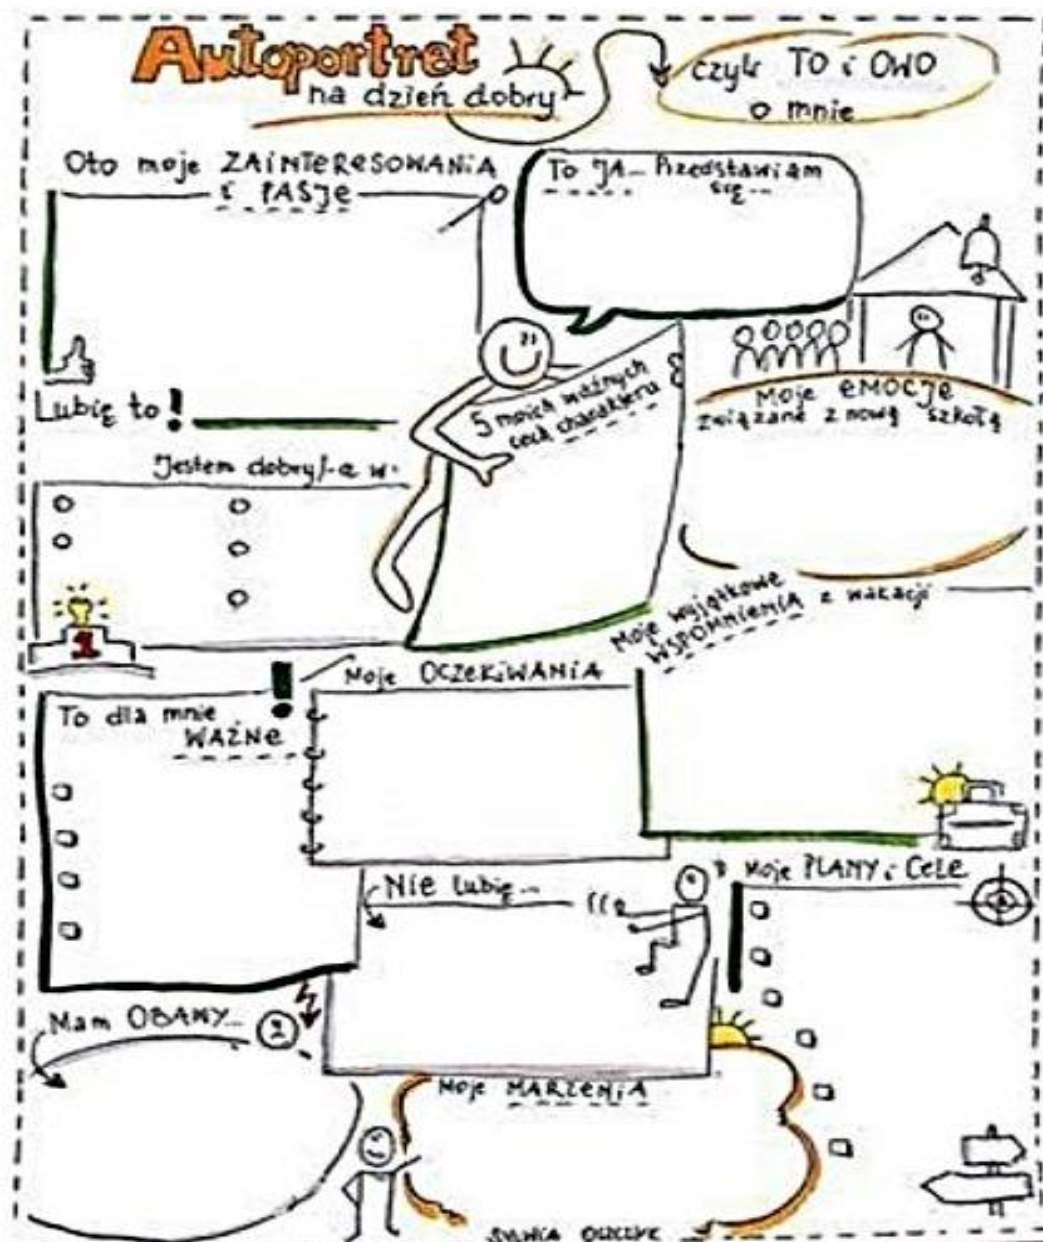 Autoportret
na dzień dobry
czyli TO i OWO
o mnie
Oto moje ZAINTERESOWANIA
i PASJE
To JA... Przedstawiam
się...
Lubię to!
5 moich ważnych
cech charakteru
Moje EMOCJE
związane z nową szkołą
Jestem dobry/-a w:
1
Moje wyjątkowe
WSPOMNIENIA z wakacji
To dla mnie
WAŻNE
!
Moje OCZEKIWANIA
Nie lubię...
Moje PLANY i CELE
Mam OBAWY...
Moje MARZENIA
SYLWIA